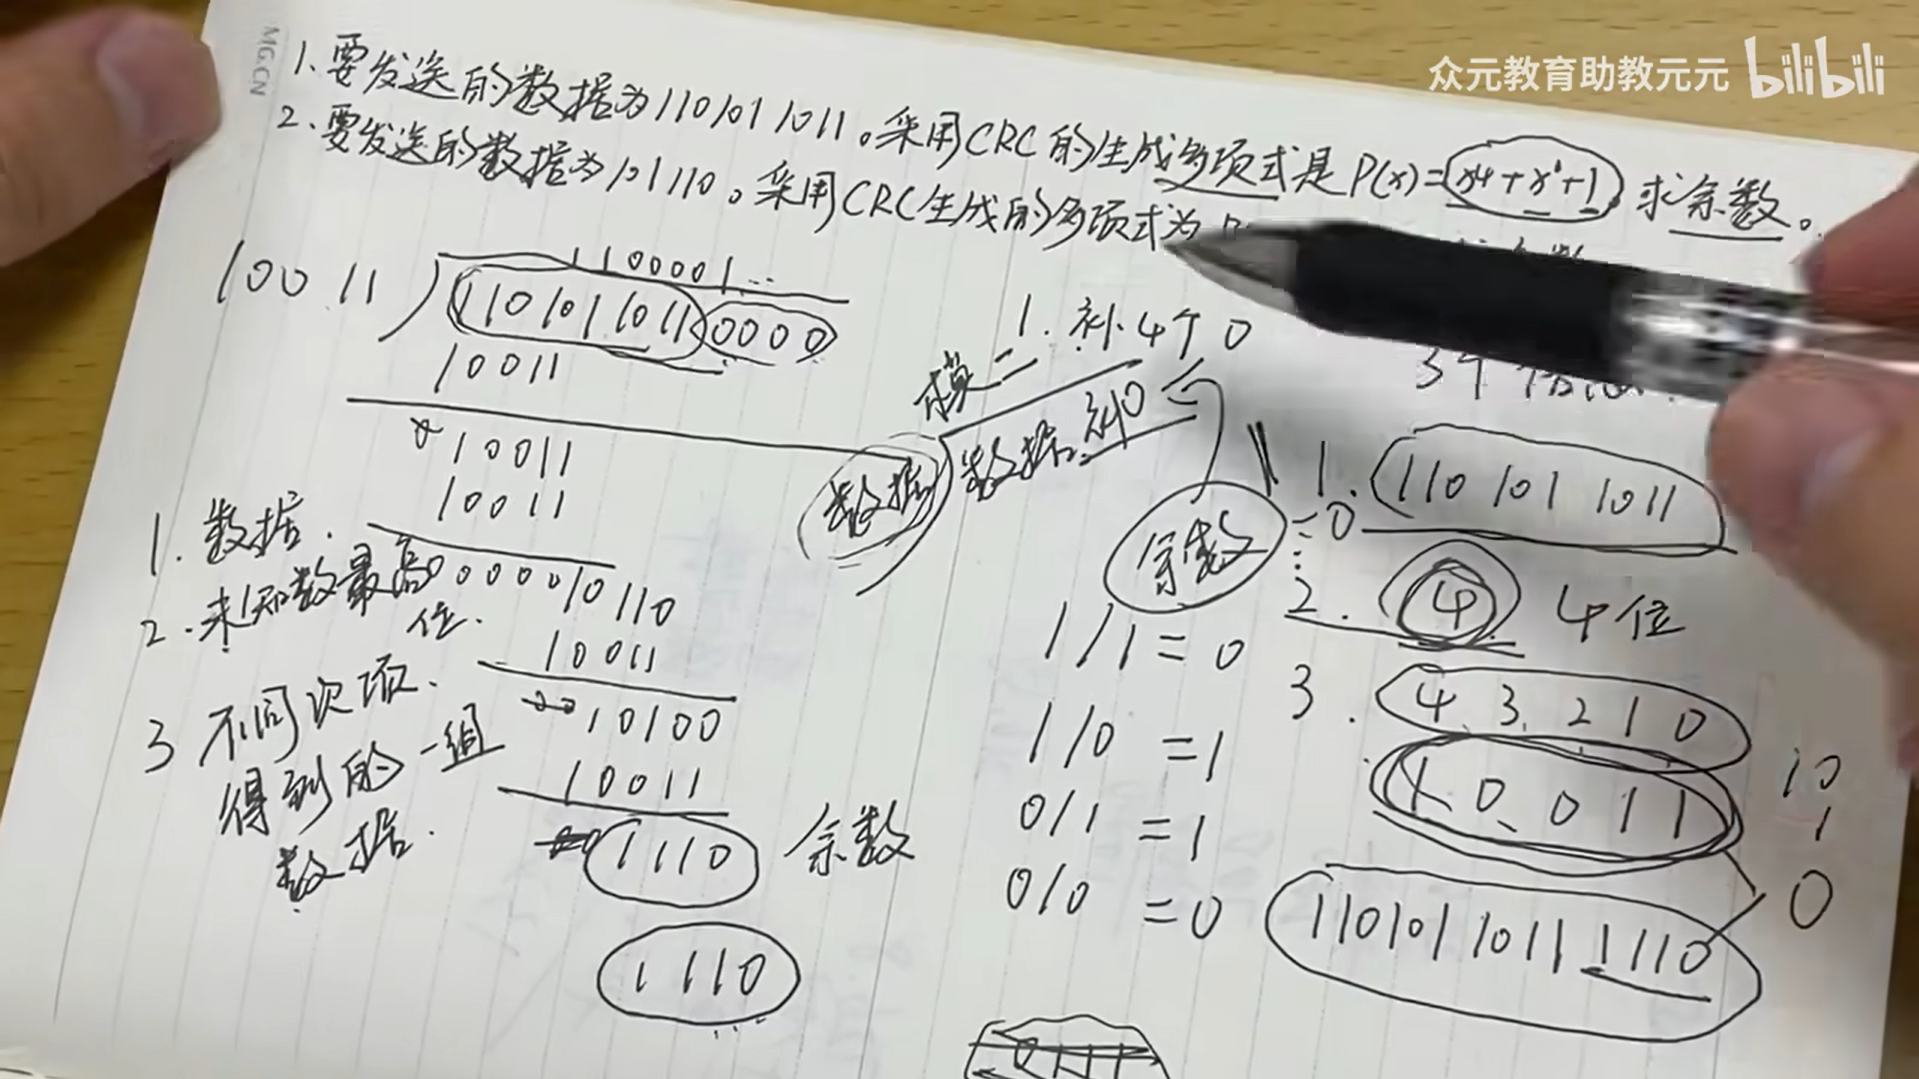 众元教育助教元元 bilibili
MG.CN
1.要发送的数据为1101011011。采用CRC的生成多项式是P(x)=x4+x¹+1 求余数。
2.要发送的数据为101110。采用CRC生成的多项式为
1100001...
10011
11010110110000
10011
10011
10011
0000010110
10011
10100
10011
1110 余数
1110
1.数据.
2.未知数最高位.
3 不同次项.
得到的一组
数据.
1.补4个0
模二
数据
数据补0
余数
=0
1/1=0
1/0=1
0/1=1
0/0=0
3个
1. 1101011011
2. 4 4位
3. 4 3 2 1 0
1 0 0 1 1
10
1
0
11010110111110